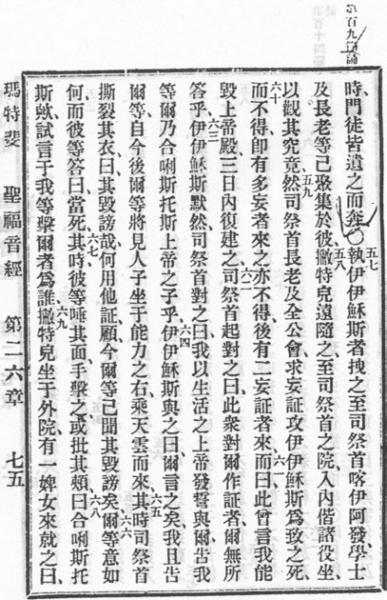 第百九
五七
時門徒皆遺之而奔〇執伊伊穌斯者拽之至司祭首喀伊阿發學士
五八
及長老等已聚集於彼、撇特兒遠隨之至司祭首之院、入內偕諸役坐、
五九
以觀其究竟、然司祭首長老及全公會、求妄証攻伊伊穌斯、爲致之死、
六十 六一
而不得、卽有多妄者來之、亦不得、後有二妄証者來而曰、此曾言我能
六二
毀上帝殿、三日內復建之、司祭首起對之曰、此衆對爾作証者、爾無所
六三
答乎、伊伊穌斯默然、司祭首對之曰、我以生活之上帝發誓與爾、告我
六四
等爾乃合唎斯托斯上帝之子乎、伊伊穌斯與之曰、爾言之矣、我且告
六五
爾等、自今後爾等將見人子坐于能力之右、乘天雲而來、其時司祭首
六六
撕裂其衣曰、其毀謗哉、何用他証、顧今爾等已聞其毀謗矣、爾等意如
六七 六八
何、而彼等答曰、當死、其時彼等唾其面、手擊之、或批其頰、曰、合唎斯托
六九
斯歟、試言于我等、擊爾者爲誰、撇特兒坐于外院、有一婢女來就之曰、
瑪特斐 聖福音經 第二六章 七五